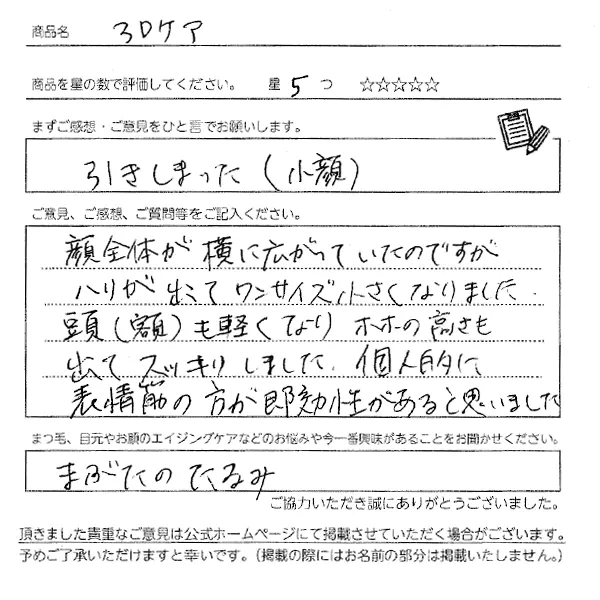 商品名 3Dケア
商品を星の数で評価してください。 星 5 つ ☆☆☆☆☆
まずご感想・ご意見をひと言でお願いします。
引きしまった（小顔）
ご意見、ご感想、ご質問等をご記入ください。
顔全体が横に広がっていたのですが
ハリが出てワンサイズ小さくなりました.
頭（額）も軽くなり ホホの高さも
出てスッキリしました. 個人的に
表情筋の方が即効性があると思いました
まつ毛、目元やお顔のエイジングケアなどのお悩みや今一番興味があることをお聞かせください。
まぶたのたるみ
ご協力いただき誠にありがとうございました。
頂きました貴重なご意見は公式ホームページにて掲載させていただく場合がございます。
予めご了承いただけますと幸いです。（掲載の際にはお名前の部分は掲載いたしません。）